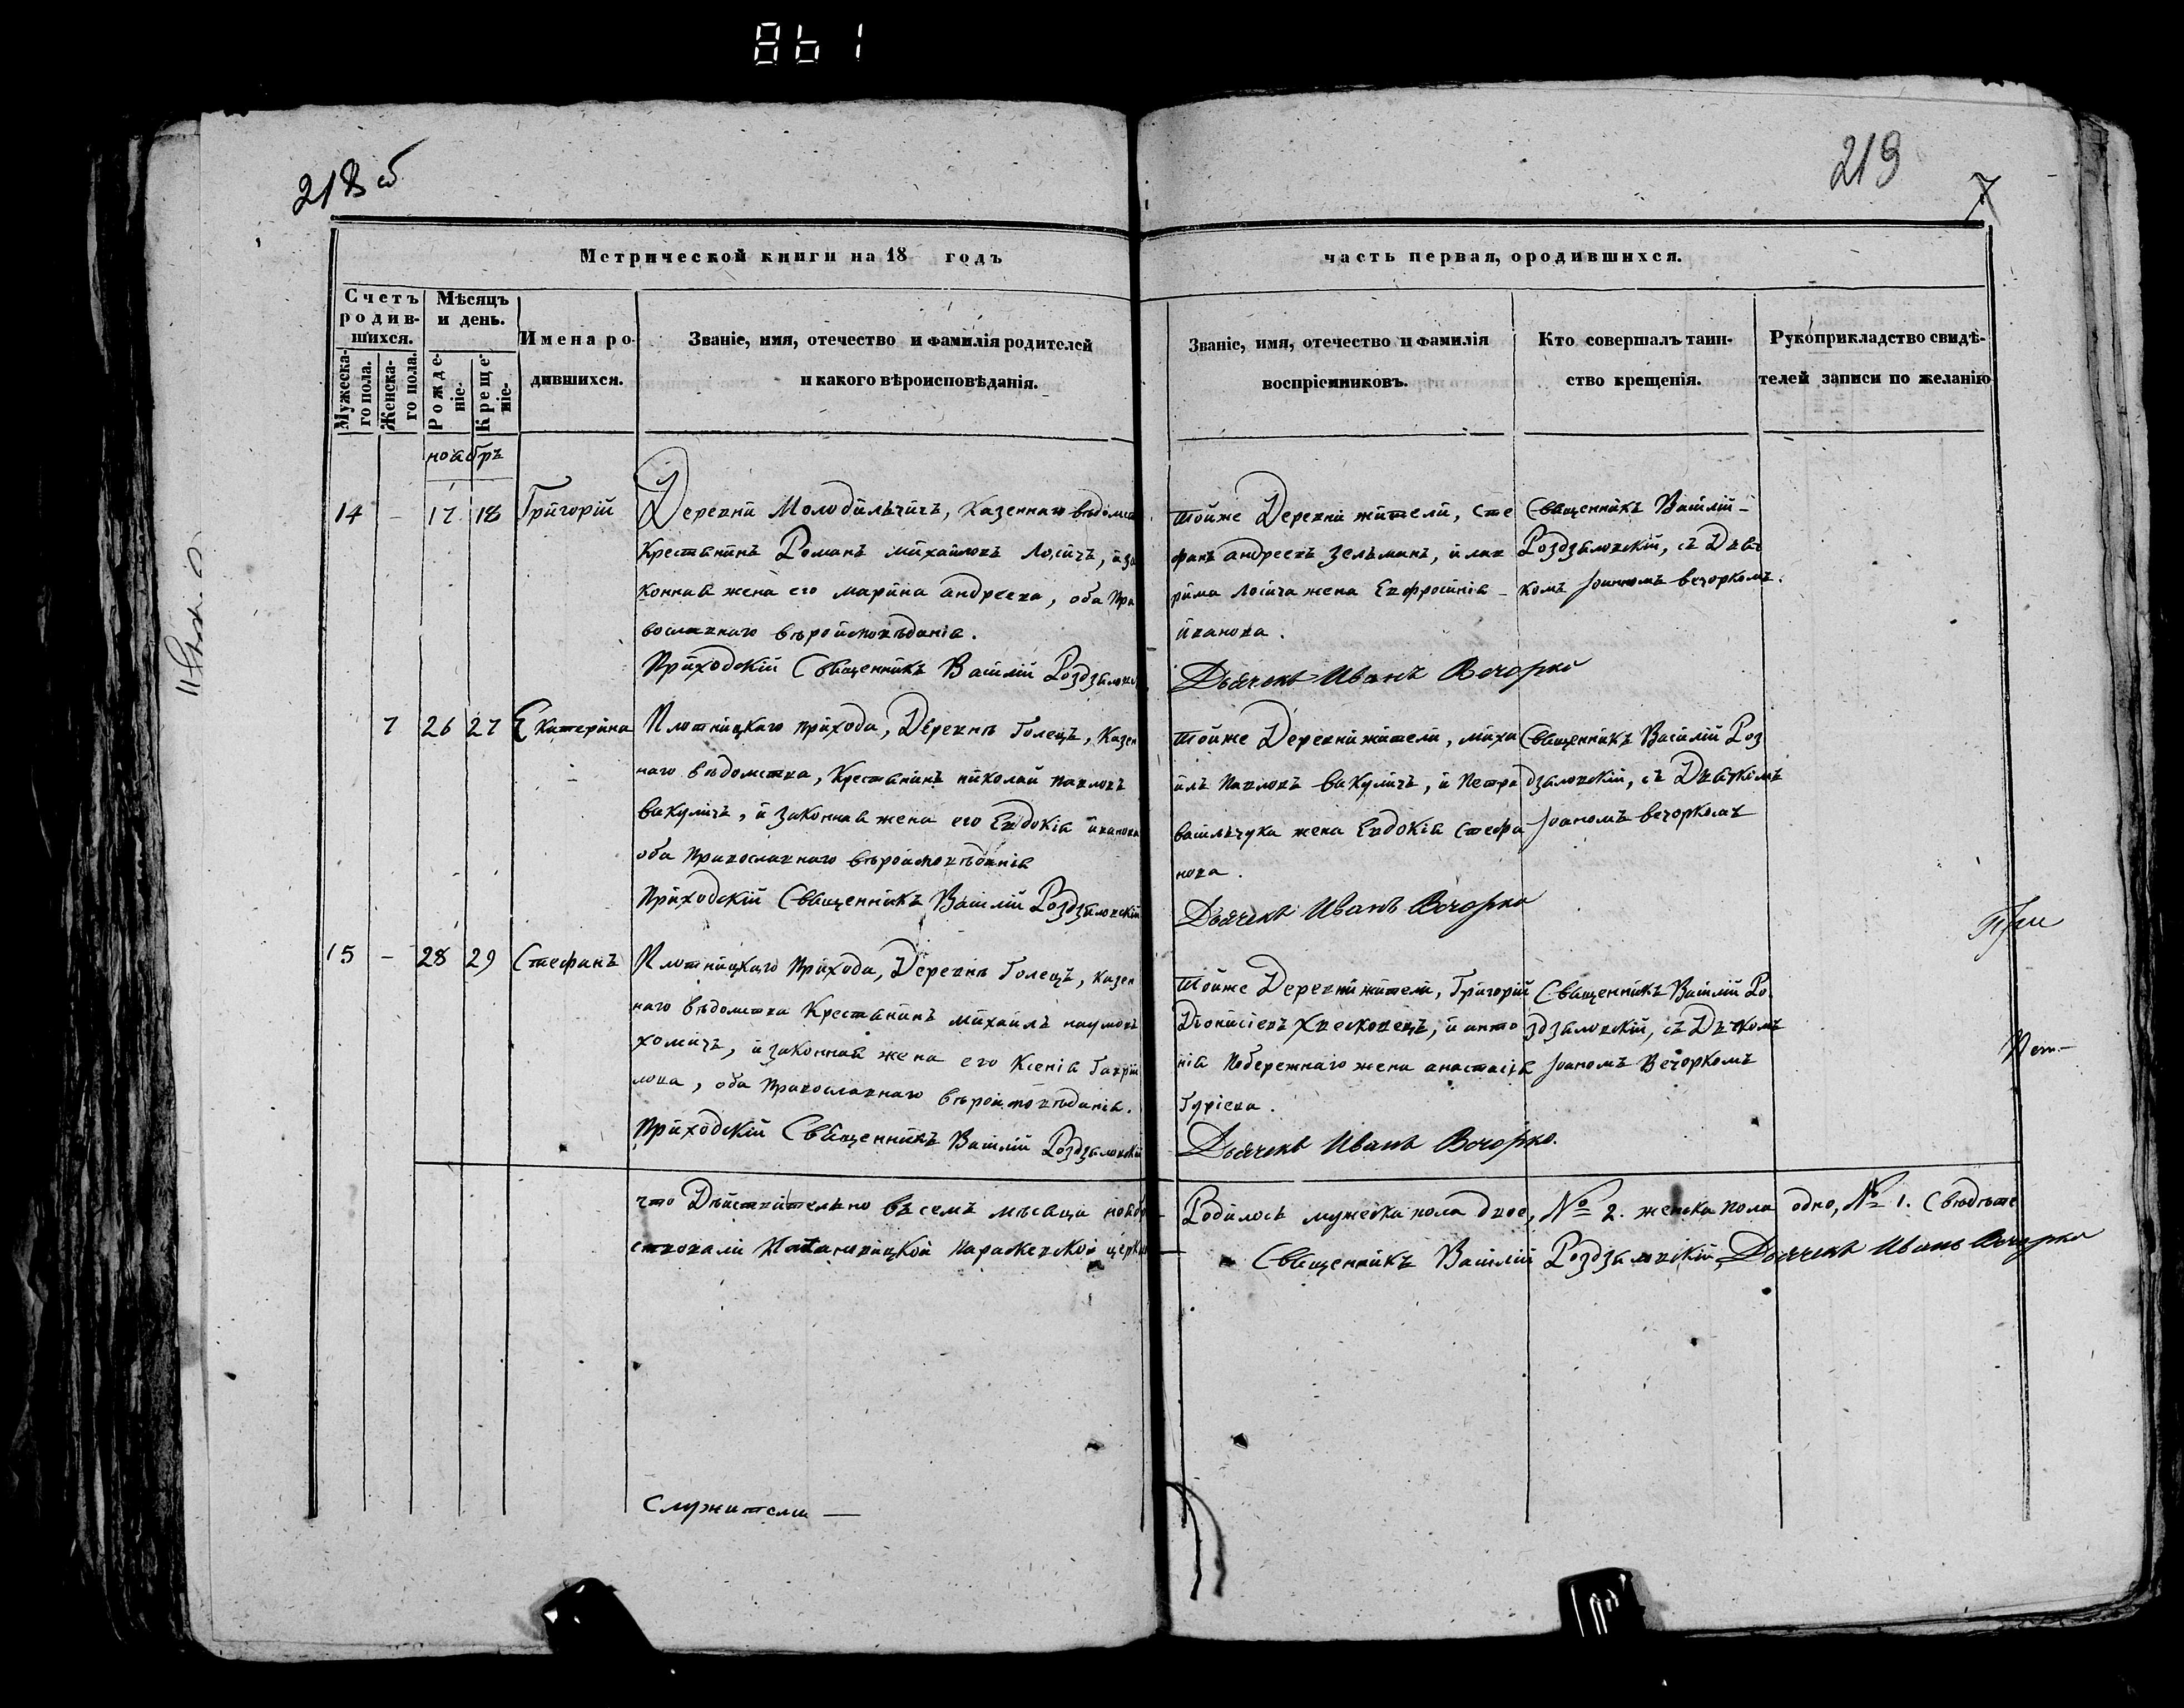 861
218 об
219
7
Метрической книги на 18 годъ
часть первая, ородившихся.
Счетъ родив-шихся.
Мужеска-го пола.
Женска-го пола.
Мѣсяцъ и день.
Рожде-ніе.
Креще-ніе.
Имена ро-дившихся.
Званіе, имя, отечество и фамилія родителей
и какого вѣроисповѣданія.
Званіе, имя, отечество и фамилія
воспріемниковъ.
Кто совершалъ таин-
ство крещенія.
Рукоприкладство свидѣ-
телей записи по желанію
ноабръ
14 - 17 18 Григорій
Деревни Молодильчичъ, Казеннаго вѣдомст
Крестанинъ Романъ михайловъ Лосичъ, иза
коннаа жена его марина андреева, оба Пра
вославнаго вѣроисповѣданіа.
Приходскій Сващенникъ Василій Роздзаловск
тойже Деревни жители, Сте
фанъ андреевъ зельманъ, и лав
рима Лосича жена Евфросиніа -
иванова.
Дьячекъ Иванъ Вечорко
Сващенникъ Василій -
Роздзаловскій, съ Дьач
комъ Іоанномъ вечоркомъ.
7 26 27 Екатерина
Плотницкаго прихода, Деревнѣ Голецъ, Казен
наго вѣдомства, Крестанинъ николай павловъ
вакуличъ, и законнаа жена его Евдокіа иванова
оба Православнаго вѣроисповѣданіа
Приходскій Сващенникъ Василій Роздзаловскій
тойже Деревни жители, миха
илъ Павловъ вакуличъ, и Петра
васильчука жена Евдокіа Стефа
нова.
Дьячекъ Иванъ Вечорко
Сващенникъ Василій Роз
дзаловскій, съ Дьачкомъ
Іоаномъ вечоркомъ
15 - 28 29 Стефанъ
Плотницкаго Прихода, Деревнѣ Голецъ, казен
наго вѣдомства Крестанинъ михаилъ наумовъ
хомичъ, и законнаа жена его Ксеніа Гаври
лова, оба Православнаго вѣроисповѣданіа.
Приходскій Сващенникъ Василій Роздзаловскій
тойже Деревни жители, Григорій
Діонисіевъ Хвесковецъ, и анто
ніа Побережнаго жена анастасіа
Гуріева.
Дьячекъ Иванъ Вечорко.
Сващенникъ Василій Ро
здзаловскій, съ Дьчкомъ
Іоаномъ Вечоркомъ
что Дѣйствительно въ семъ мѣсаца ноабр
Родилось мужеска пола двое, № 2. женска пола одно, № 1. Свѣдѣте
ствовали Параскевской церкви
Сващенникъ Василій Роздзаловскій, Дьячекъ Иванъ Вечорко
Служители —